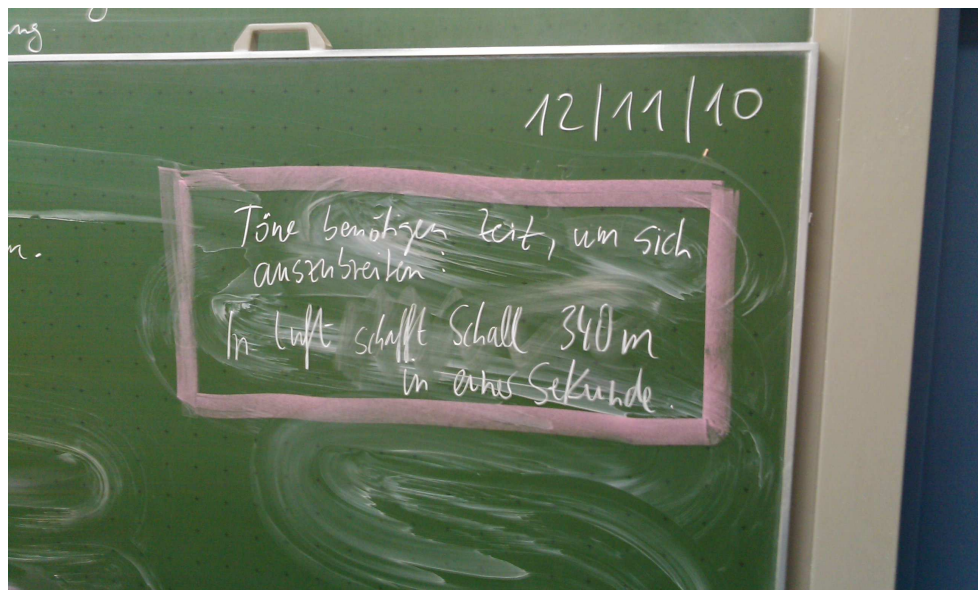 ng.
12/11/10
n.
Töne benötigen Zeit, um sich
auszubreiten:
In Luft schafft Schall 340m
in einer Sekunde.